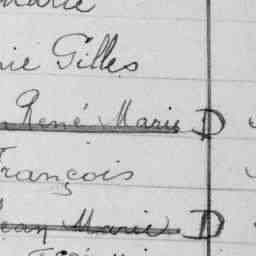 Marie
Gilles
René Marie D
François
Jean Marie D